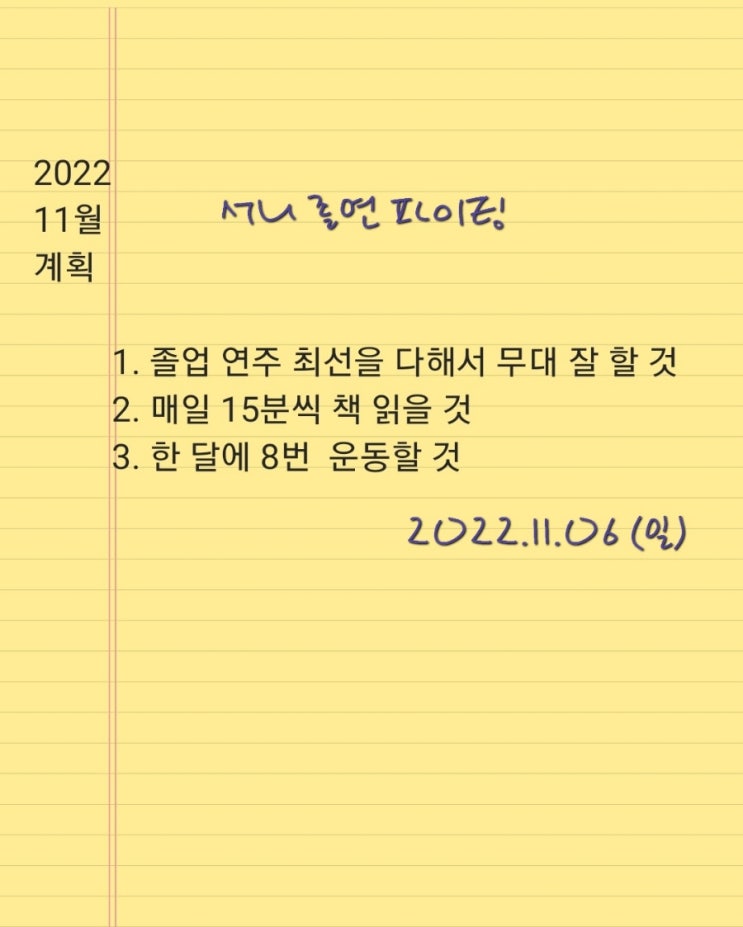 2022
11월
계획
서니 졸연 파이팅
1. 졸업 연주 최선을 다해서 무대 잘 할 것
2. 매일 15분씩 책 읽을 것
3. 한 달에 8번  운동할 것
2022.11.06 (일)